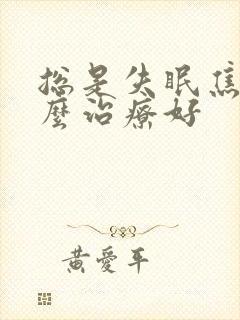 總是失眠焦
麼治療好
黃愛平